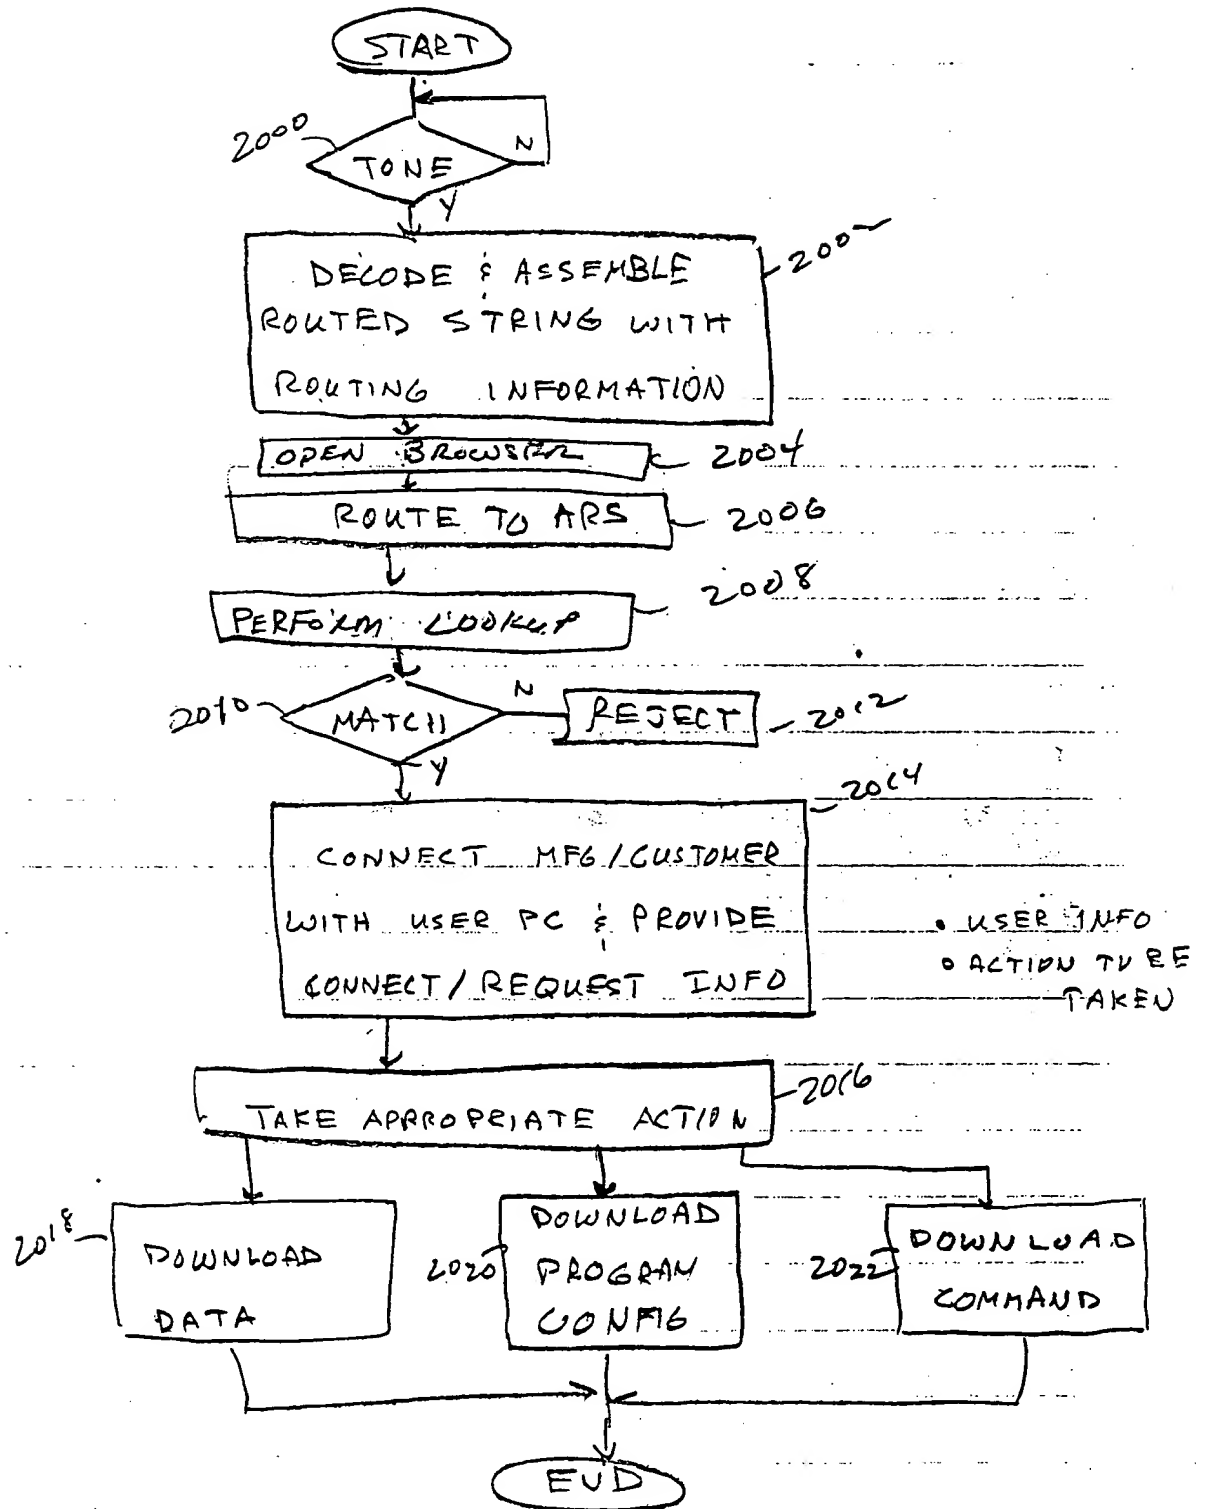 START
2000
TONE
N
Y
2002
DECODE & ASSEMBLE
ROUTED STRING WITH
ROUTING INFORMATION
OPEN BROWSER
2004
ROUTE TO ARS
2006
2008
PERFORM LOOKUP
2010
MATCH
N
REJECT
2012
Y
2014
CONNECT MFG/CUSTOMER
WITH USER PC & PROVIDE
CONNECT/REQUEST INFO
• USER INFO
• ACTION TO BE
TAKEN
2016
TAKE APPROPRIATE ACTION
2018
DOWNLOAD
DATA
2020
DOWNLOAD
PROGRAM
CONFIG
2022
DOWNLOAD
COMMAND
END